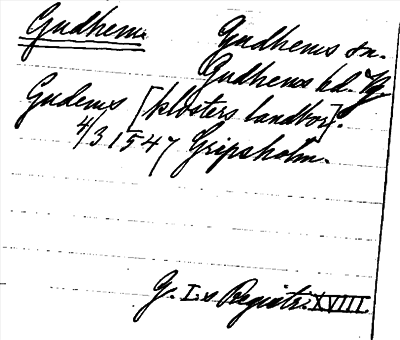 Gudhem. Gudhems sn.
Gudhems hd. Vg
Gudems [klosters landbor].
4/3 1547 Gripsholm.
G. I.s Registr. XVIII